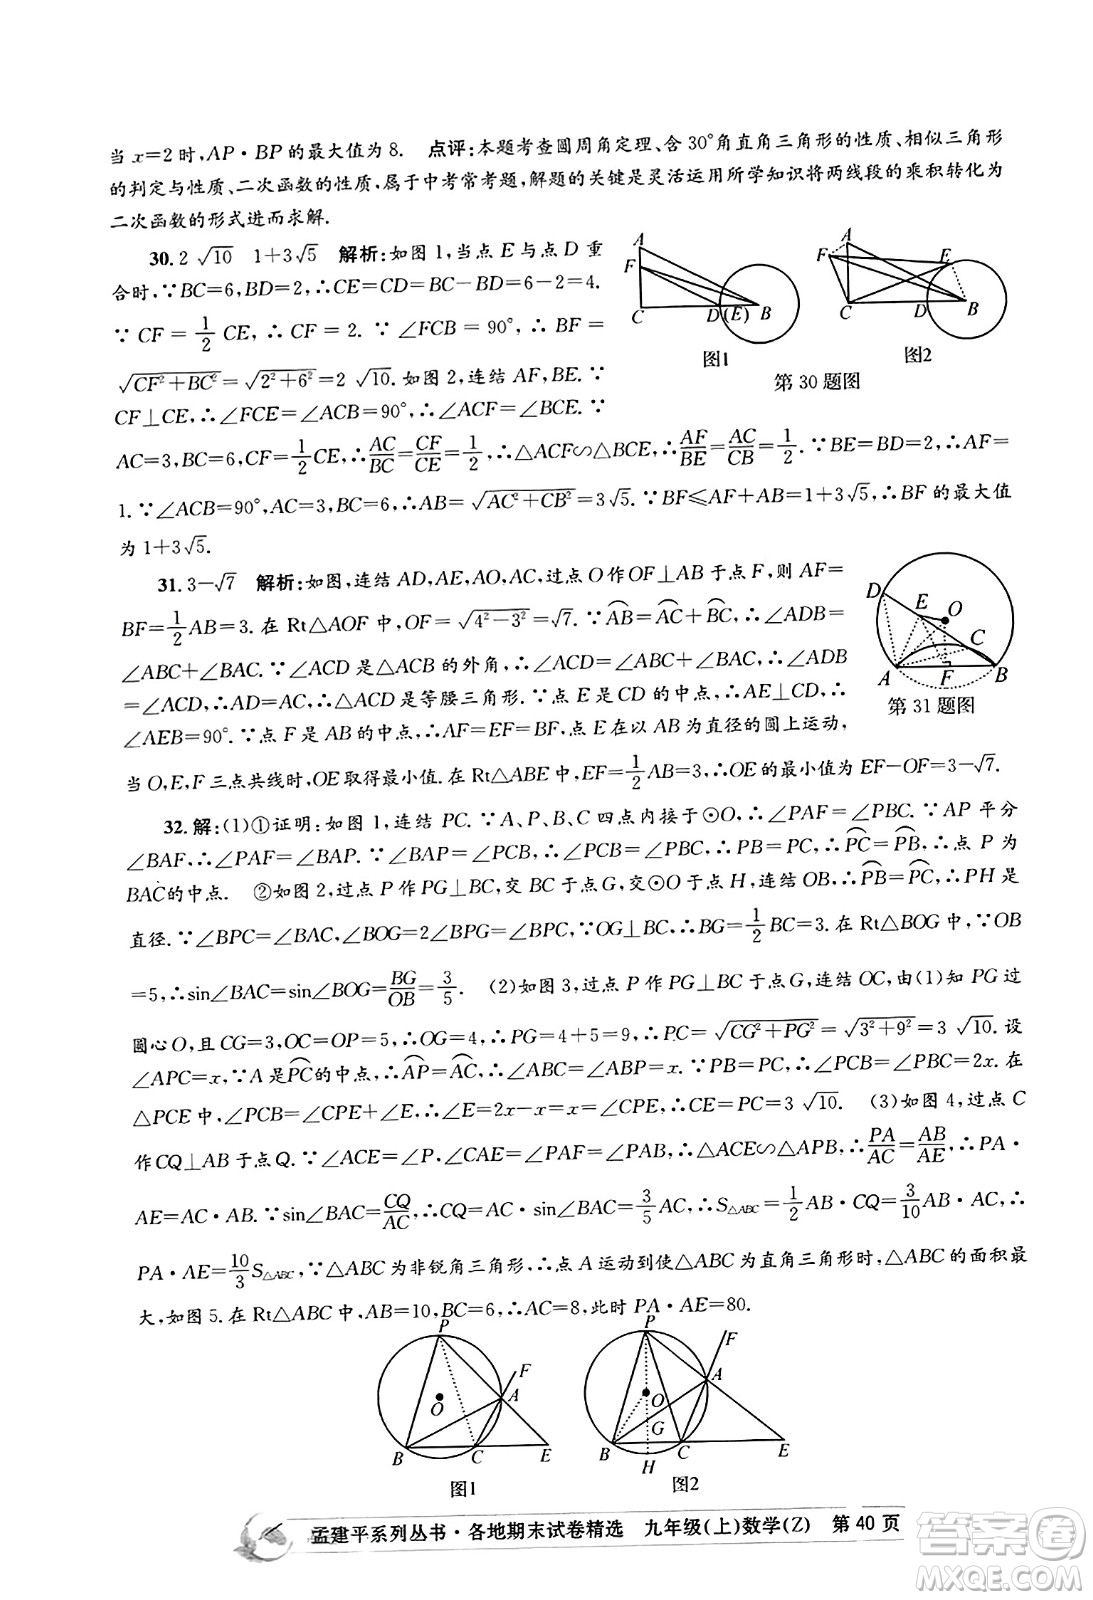 当 x=2 时,AP·BP 的最大值为 8. 点评:本题考查圆周角定理、含 30°角直角三角形的性质、相似三角形
的判定与性质、二次函数的性质,属于中考常考题,解题的关键是灵活运用所学知识将两线段的乘积转化为
二次函数的形式进而求解.
30. 2√10 1+3√5 解析:如图 1,当点 E 与点 D 重
合时,∵BC=6,BD=2,∴CE=CD=BC-BD=6-2=4.
∵ CF = 1/2 CE,∴ CF = 2. ∵ ∠FCB = 90°,∴ BF =
√(CF²+BC²)=√(2²+6²)=2√10. 如图 2,连结 AF,BE. ∵
CF⊥CE,∴∠FCE=∠ACB=90°,∴∠ACF=∠BCE. ∵
A
F
C
D(E)
B
图1
A
F
E
C
D
B
图2
第 30 题图
AC=3,BC=6,CF=1/2CE,∴AC/BC=CF/CE=1/2,∴△ACF∽△BCE,∴AF/BE=AC/CB=1/2. ∵BE=BD=2,∴AF=
1. ∵∠ACB=90°,AC=3,BC=6,∴AB=√(AC²+CB²)=3√5. ∵BF≤AF+AB=1+3√5,∴BF 的最大值
为 1+3√5.
31. 3-√7 解析:如图,连结 AD,AE,AO,AC,过点 O 作 OF⊥AB 于点 F,则 AF=
BF=1/2AB=3. 在 Rt△AOF 中,OF=√(4²-3²)=√7. ∵⌒AB=⌒AC+⌒BC,∴∠ADB=
∠ABC+∠BAC. ∵∠ACD 是△ACB 的外角,∴∠ACD=∠ABC+∠BAC,∴∠ADC
=∠ACD,∴AD=AC,∴△ACD 是等腰三角形. ∵点 E 是 CD 的中点,∴AE⊥CD,∴
∠AEB=90°. ∵点 F 是 AB 的中点,∴AF=EF=BF,∴点 E 在以 AB 为直径的圆上运动,
D
E
O
C
A
F
B
第 31 题图
当 O,E,F 三点共线时,OE 取得最小值. 在 Rt△ABE 中,EF=1/2AB=3,∴OE 的最小值为 EF-OF=3-√7.
32. 解:(1)①证明:如图 1,连结 PC. ∵A、P、B、C 四点内接于⊙O,∴∠PAF=∠PBC. ∵AP 平分
∠BAF,∴∠PAF=∠BAP. ∵∠BAP=∠PCB,∴∠PCB=∠PBC,∴⌒PC=⌒PB,∴点 P 为
⌒BAC的中点. ②如图 2,过点 P 作 PG⊥BC,交 BC 于点 G,交⊙O 于点 H,连结 OB,∴⌒PB=⌒PC,∴PH 是
直径. ∵∠BPC=∠BAC,∠BOG=2∠BPG=∠BPC. ∵OG⊥BC,∴BG=1/2BC=3. 在 Rt△BOG 中,∵OB
=5,∴sin∠BAC=sin∠BOG=BG/OB=3/5. (2)如图 3,过点 P 作 PG⊥BC 于点 G,连结 OC,由(1)知 PG 过
圆心 O,且 CG=3,OC=OP=5,∴OG=4,∴PG=4+5=9,∴PC=√(CG²+PG²)=√(3²+9²)=3√10. 设
∠APC=x,∵A 是⌒PC的中点,∴⌒AP=⌒AC,∴∠ABC=∠ABP=x. ∵PB=PC,∴∠PCB=∠PBC=2x. 在
△PCE 中,∠PCB=∠CPE+∠E,∴∠E=2x-x=x=∠CPE,∴CE=PC=3√10. (3)如图 4,过点 C
作 CQ⊥AB 于点 Q. ∵∠ACE=∠P,∠CAE=∠PAF=∠PAB,∴△ACE∽△APB,∴PA/AC=AB/AE,∴PA·
AE=AC·AB. ∵sin∠BAC=CQ/AC,∴CQ=AC·sin∠BAC=3/5AC,∴S△ABC=1/2AB·CQ=3/10AB·AC,∴
PA·AE=10/3S△ABC,∵△ABC 为非锐角三角形,∴点 A 运动到使△ABC 为直角三角形时,△ABC 的面积最
大,如图 5. 在 Rt△ABC 中,AB=10,BC=6,∴AC=8,此时 PA·AE=80.
P
F
A
O
B
C
E
图1
P
F
A
O
G
B
C
E
H
图2
孟建平系列丛书·各地期末试卷精选 九年级(上)数学(Z) 第 40 页